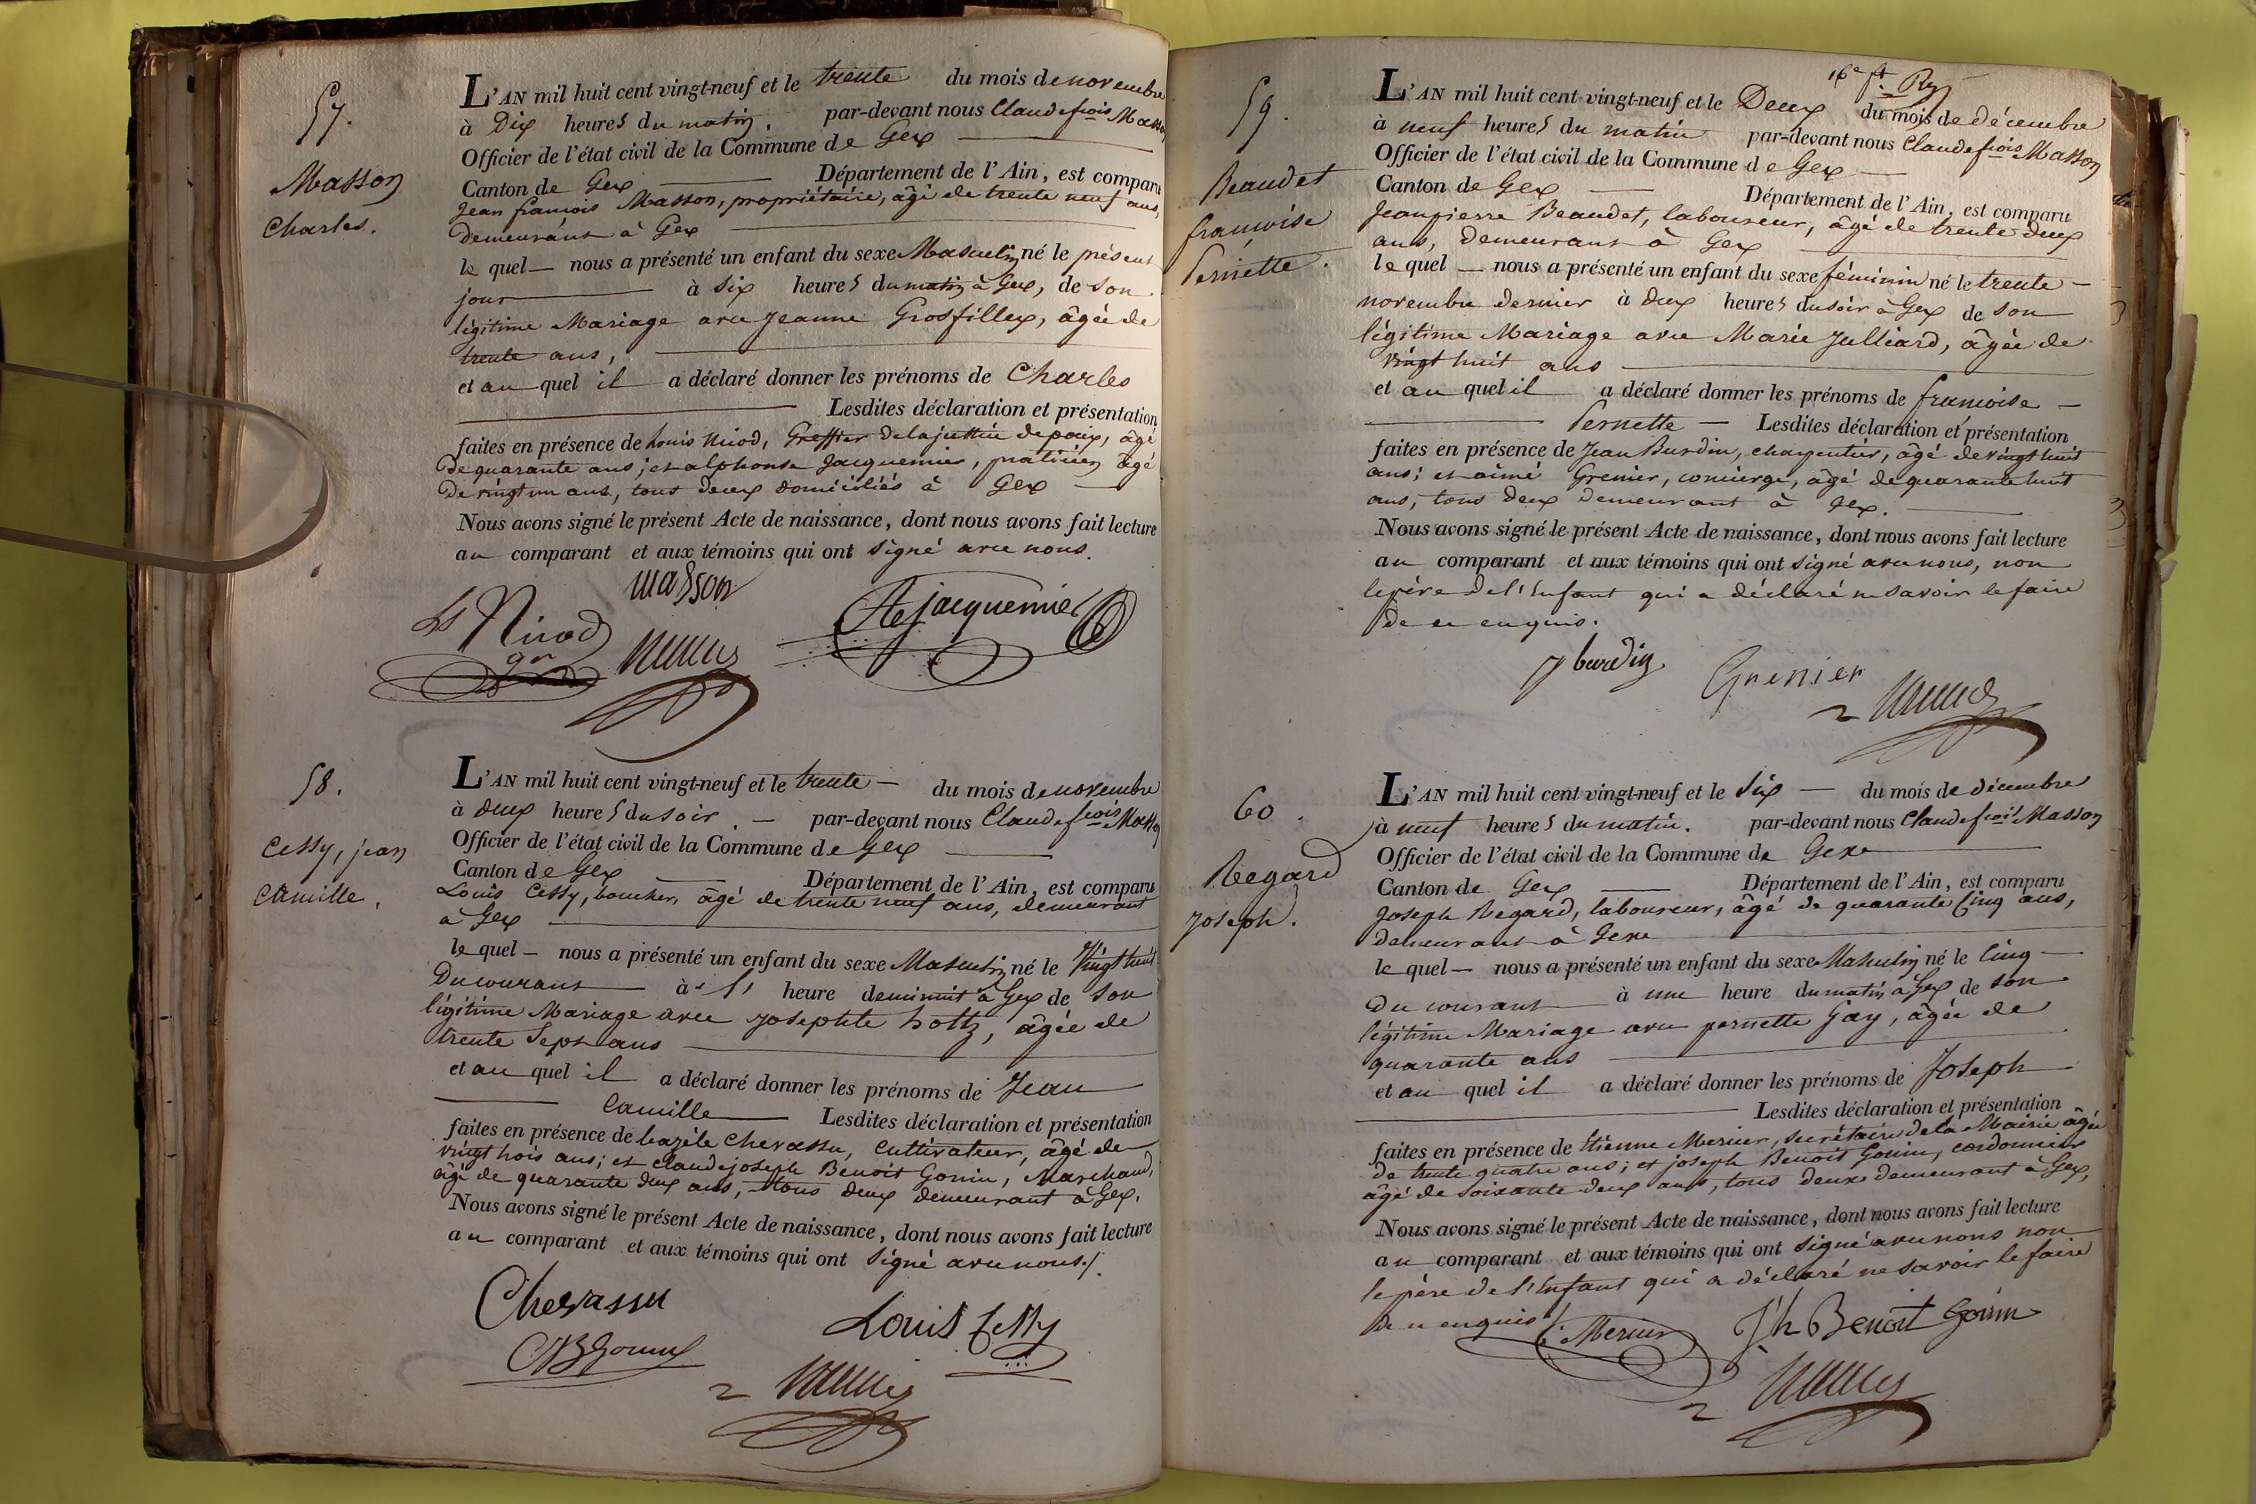 57.
Masson
Charles.
L'AN mil huit cent vingt-neuf et le trente du mois de novembre
à Dix heures du matin. par-devant nous Claude fçois Masson
Officier de l'état civil de la Commune de Gex
Canton de Gex Département de l'Ain, est comparu
Jean françois Masson, propriétaire, âgé de trente neuf ans,
demeurant à Gex
le quel nous a présenté un enfant du sexe Masculin né le présent
jour à six heures du matin à Gex, de son
légitime Mariage avec Jeanne Grosfillex, âgée de
trente ans,
et au quel il a déclaré donner les prénoms de Charles
Lesdites déclaration et présentation
faites en présence de Louis Nicod, Greffier de la justice de paix, âgé
de quarante ans; et alphonse Jacquemier, praticien âgé
de vingt un ans, tous deux domiciliés à Gex
Nous avons signé le présent Acte de naissance, dont nous avons fait lecture
au comparant et aux témoins qui ont signé avec nous.
masson
Ls Nicod
ger
Ae jacquemier
58.
Cessy, jean
Camille,
L'AN mil huit cent vingt-neuf et le trente du mois de novembre
à deux heures du soir. par-devant nous Claude fçois Masson
Officier de l'état civil de la Commune de Gex
Canton de Gex Département de l'Ain, est comparu
Louis Cessy, boucher, âgé de trente neuf ans, demeurant
à Gex
le quel nous a présenté un enfant du sexe Masculin né le Vingt huit
Du courant à l' heure de minuit à Gex de son
légitime Mariage avec Josephte hottz, âgée de
trente Sept ans
et au quel il a déclaré donner les prénoms de Jean
Camille Lesdites déclaration et présentation
faites en présence de bazile Chevassu, Cultivateur, âgé de
vingt trois ans; et claude joseph Benoit Gonin, Marchand,
âgé de quarante deux ans, tous deux demeurant à Gex.
Nous avons signé le présent Acte de naissance, dont nous avons fait lecture
au comparant et aux témoins qui ont signé avec nous./.
Chevassu
Louis Cessy
CJBGonin
59.
Beaudet
françoise
Pernette.
16e ft. Ry
L'AN mil huit cent vingt-neuf et le Deux du mois de décembre
à neuf heures du matin par-devant nous Claude fçois Masson
Officier de l'état civil de la Commune de Gex
Canton de Gex Département de l'Ain, est comparu
Jeanpierre Beaudet, laboureur, âgé de trente deux
ans, demeurant à Gex
le quel nous a présenté un enfant du sexe féminin né le trente
novembre dernier à deux heures du soir à Gex de son
légitime Mariage avec Marie Julliard, âgée de
vingt huit ans
et au quel il a déclaré donner les prénoms de françoise
Pernette Lesdites déclaration et présentation
faites en présence de Jean Burdin, charpentier, âgé de vingt huit
ans; et aimé Grenier, concierge, âgé de quarante huit
ans, tous deux demeurant à Gex.
Nous avons signé le présent Acte de naissance, dont nous avons fait lecture
au comparant et aux témoins qui ont signé avec nous, non
le père de l'Enfant qui a déclaré ne savoir le faire
de ce enquis.
J burdin
Grenier
60.
Regard
Joseph.
L'AN mil huit cent vingt-neuf et le six du mois de décembre
à neuf heures du matin. par-devant nous Claude fçois Masson
Officier de l'état civil de la Commune de Gex
Canton de Gex Département de l'Ain, est comparu
Joseph Regard, laboureur, âgé de quarante Cinq ans,
demeurant à Gex
le quel nous a présenté un enfant du sexe Masculin né le Cinq
du courant à une heure du matin à Gex de son
légitime Mariage avec pernette Gay, âgée de
quarante ans
et au quel il a déclaré donner les prénoms de Joseph
Lesdites déclaration et présentation
faites en présence de Etienne Mercier, secrétaire de la Mairie âgé
de trente quatre ans; et joseph Benoit Gonin, cordonnier
âgé de soixante deux ans, tous deux demeurant à Gex,
Nous avons signé le présent Acte de naissance, dont nous avons fait lecture
au comparant et aux témoins qui ont signé avec nous non
le père de l'Enfant qui a déclaré ne savoir le faire
de ce enquis
E. Mercier
Jh Benoit Gonin